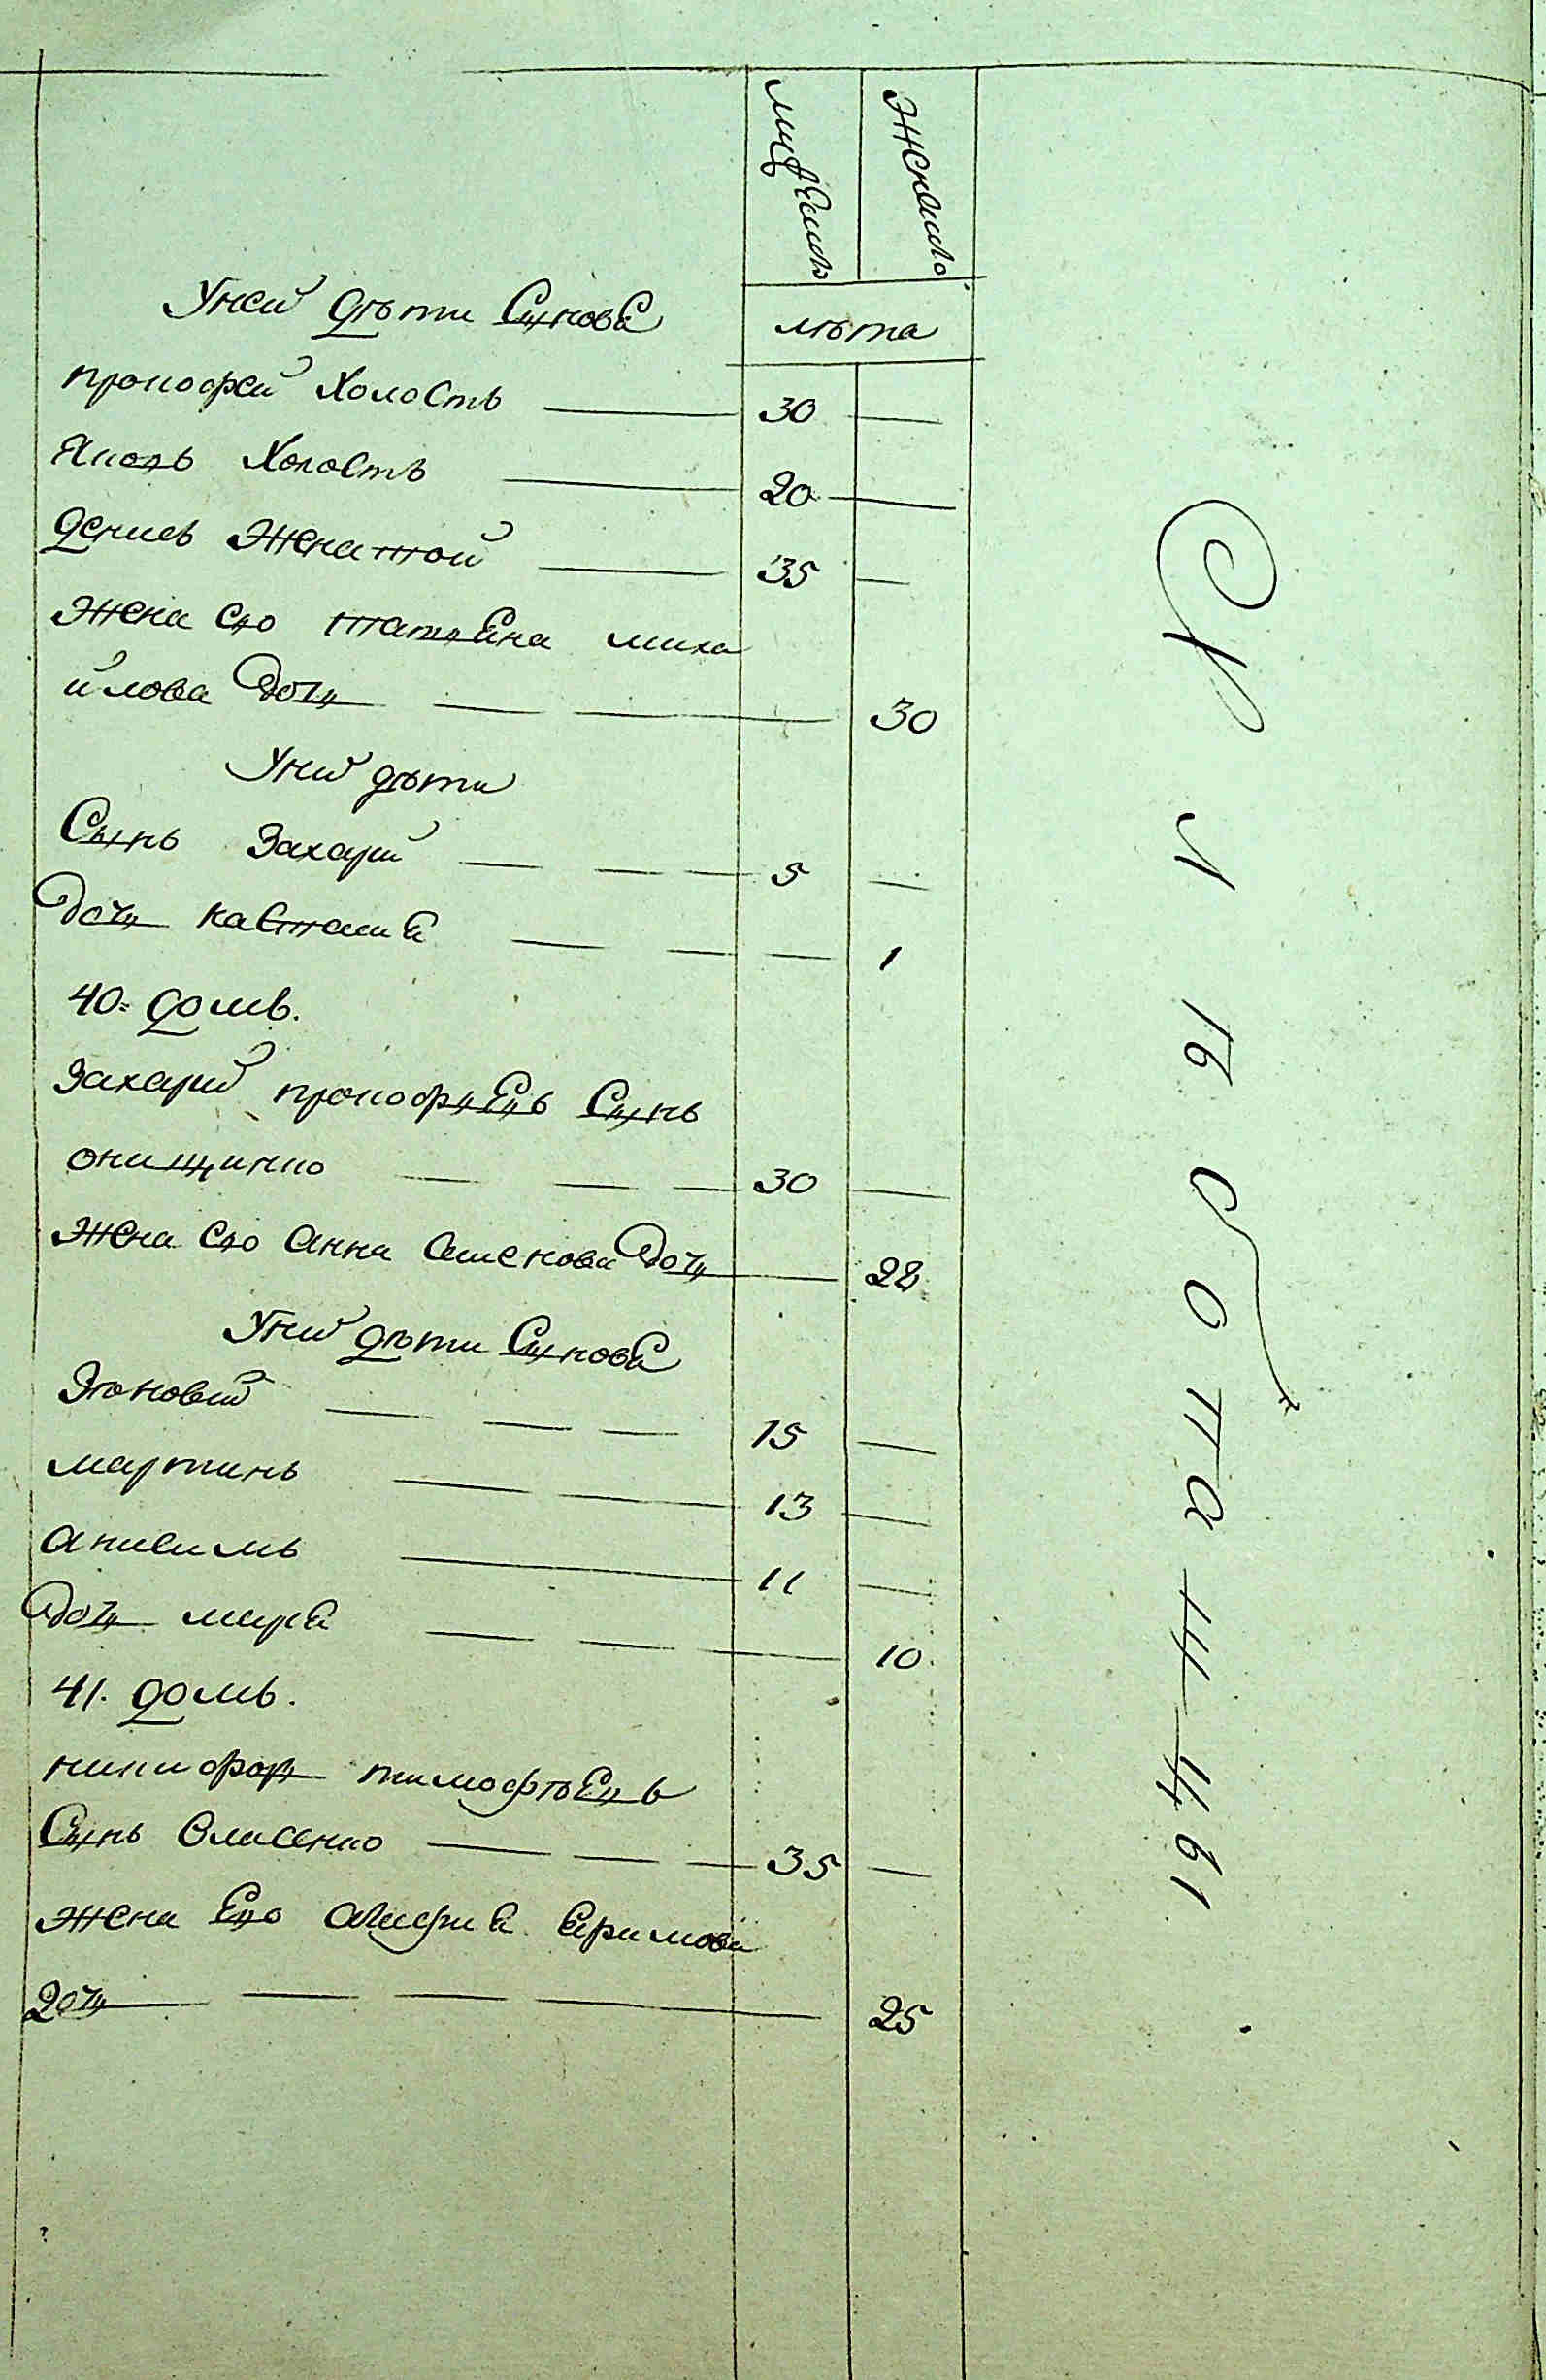 мужеска
женска
лѣта
У ней дѣти Сынова
прокофей Холостъ — 30 —
Яковъ Холостъ — 20 —
денисъ Женатой — 35 —
Жена его татьяна миха
йлова дочь — — — 30
У них дѣти
Сынъ Захарий — — — 5 —
дочь — — — 1
40. домъ.
Захарий прокофьевъ Сынъ
онищенко — — — 30 —
Жена его Анна Семенова дочь — 28
У них дѣти Сынова
Зѣновей — — — 15 —
мартинъ — — 13 —
анисимъ — 11 —
дочь — — — 10
41. домъ.
никифоръ тимофѣевъ
Сынъ Власенко — — — 35 —
Жена Его Ефимова
дочь — — — — 25